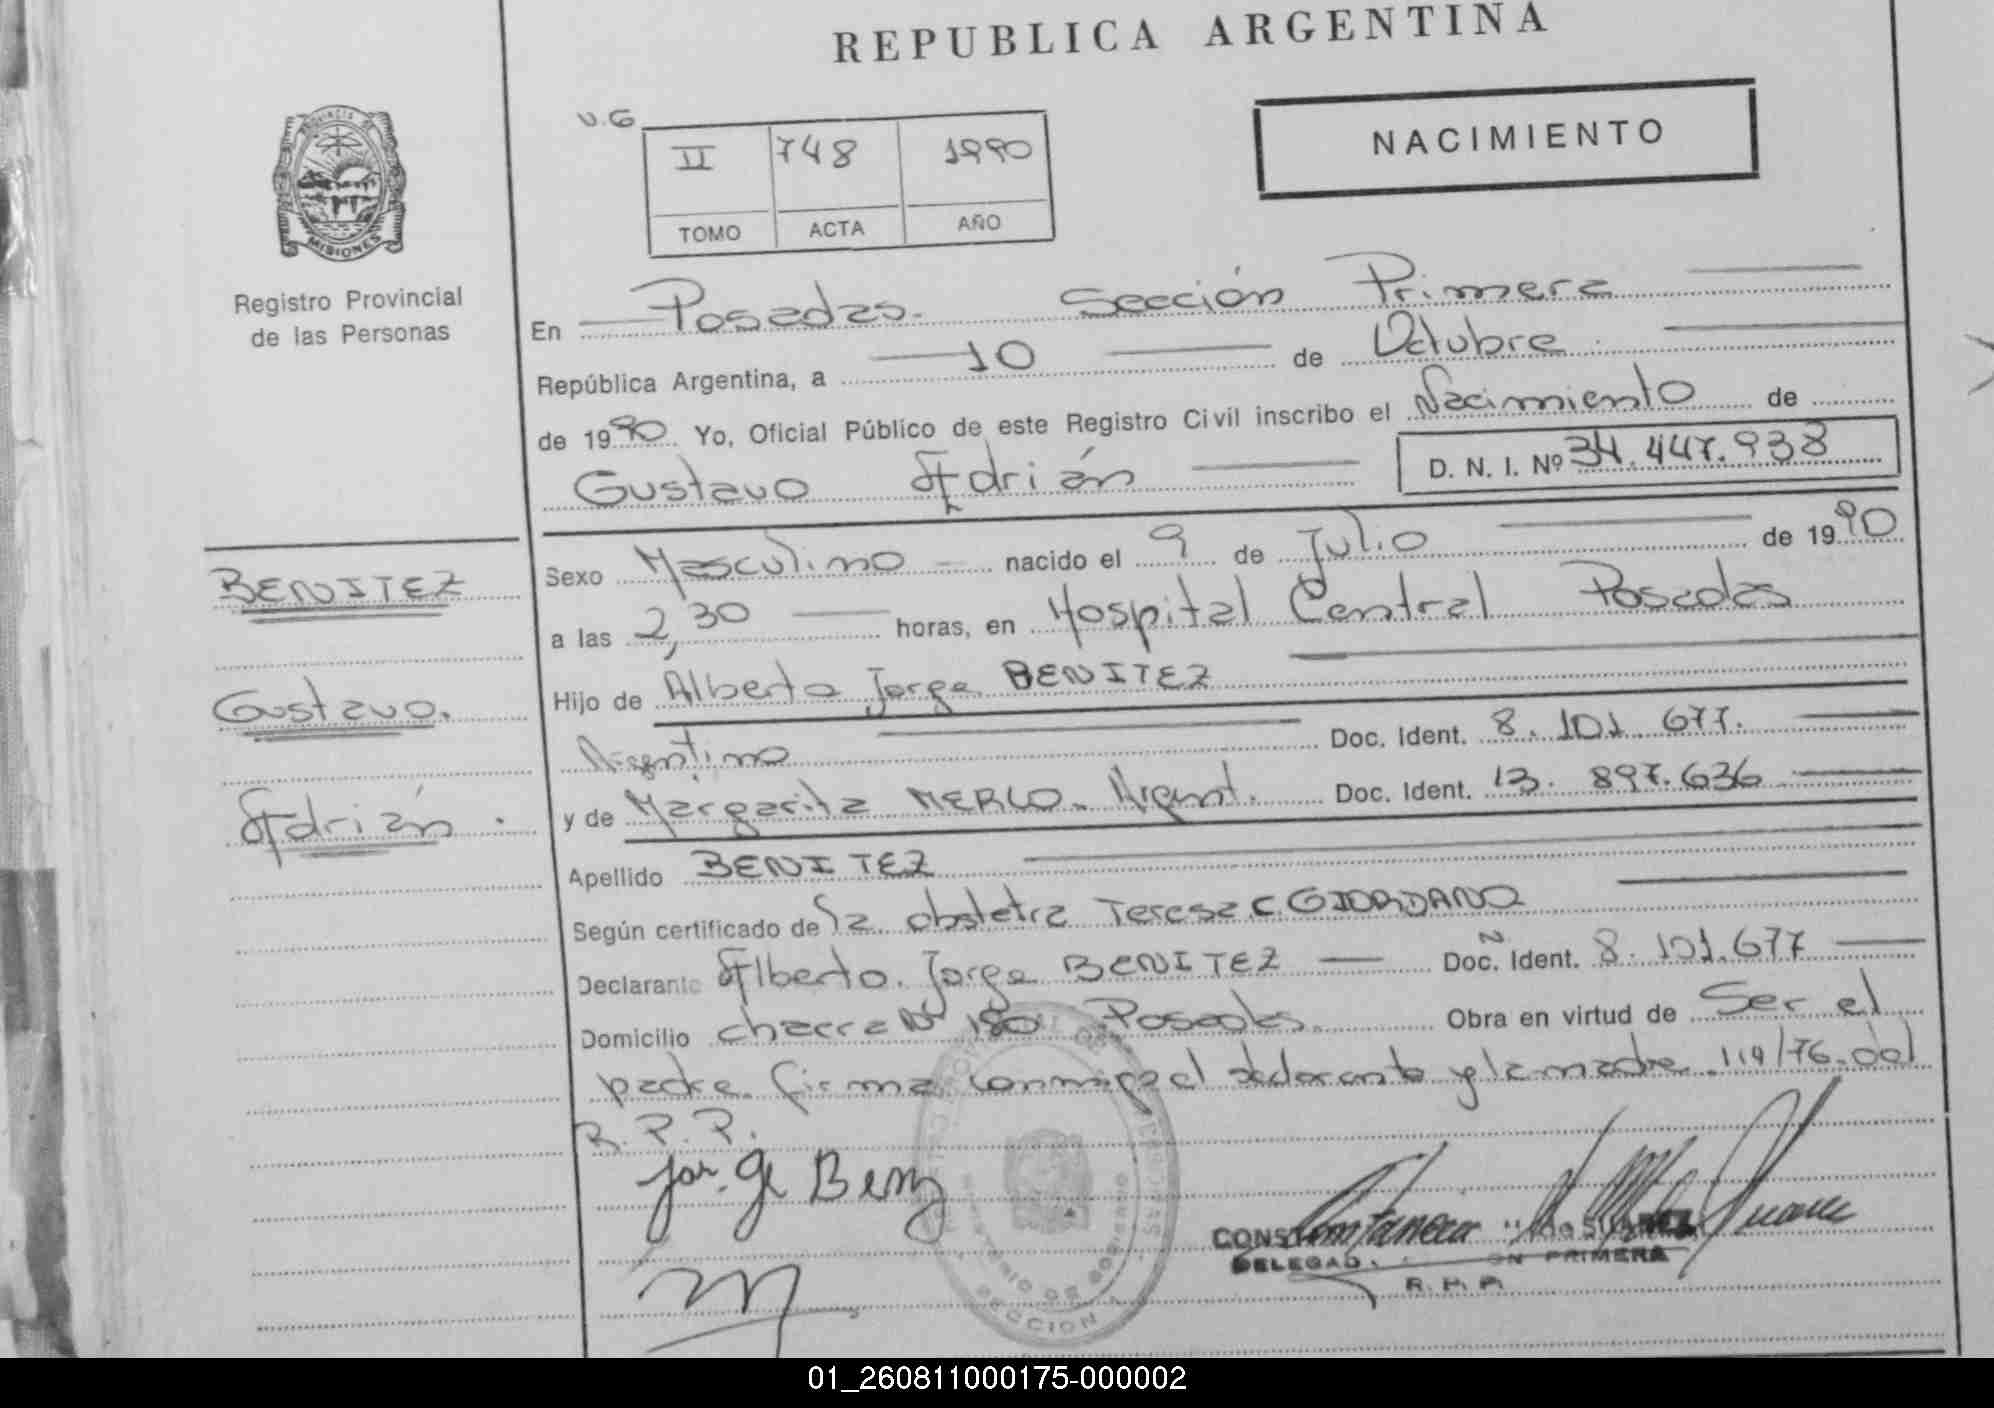 REPUBLICA ARGENTINA
NACIMIENTO
V.G
II 748 1990
TOMO ACTA AÑO
PROVINCIA DE
MISIONES
Registro Provincial
de las Personas
En Posadas. Sección Primera
República Argentina, a 10 de Octubre
de 1990. Yo, Oficial Público de este Registro Civil inscribo el Nacimiento de
Gustavo Adrián D. N. I. Nº 34.447.938
BENITEZ
Gustavo.
Adrián.
Sexo Masculino nacido el 9 de Julio de 1990
a las 2,30 horas, en Hospital Central Posadas
Hijo de Alberto Jorge BENITEZ
Argentino Doc. Ident. 8.101.677.
y de Margarita MERLO. Argent. Doc. Ident. 13.897.636
Apellido BENITEZ
Según certificado de la obstetra Teresa C. GIORDANO
Declarante Alberto Jorge BENITEZ Doc. Ident. 8.101.677
Domicilio chacra Nº 180 Posadas. Obra en virtud de Ser el
padre. firma conmigo el declarante y la madre. 119/76. del
R.P.P.
Jorge Benz
MINISTERIO DE GOBIERNO
SECCION 1
SUAREZ
PRIMERA
R. P. P.
01_260811000175-000002